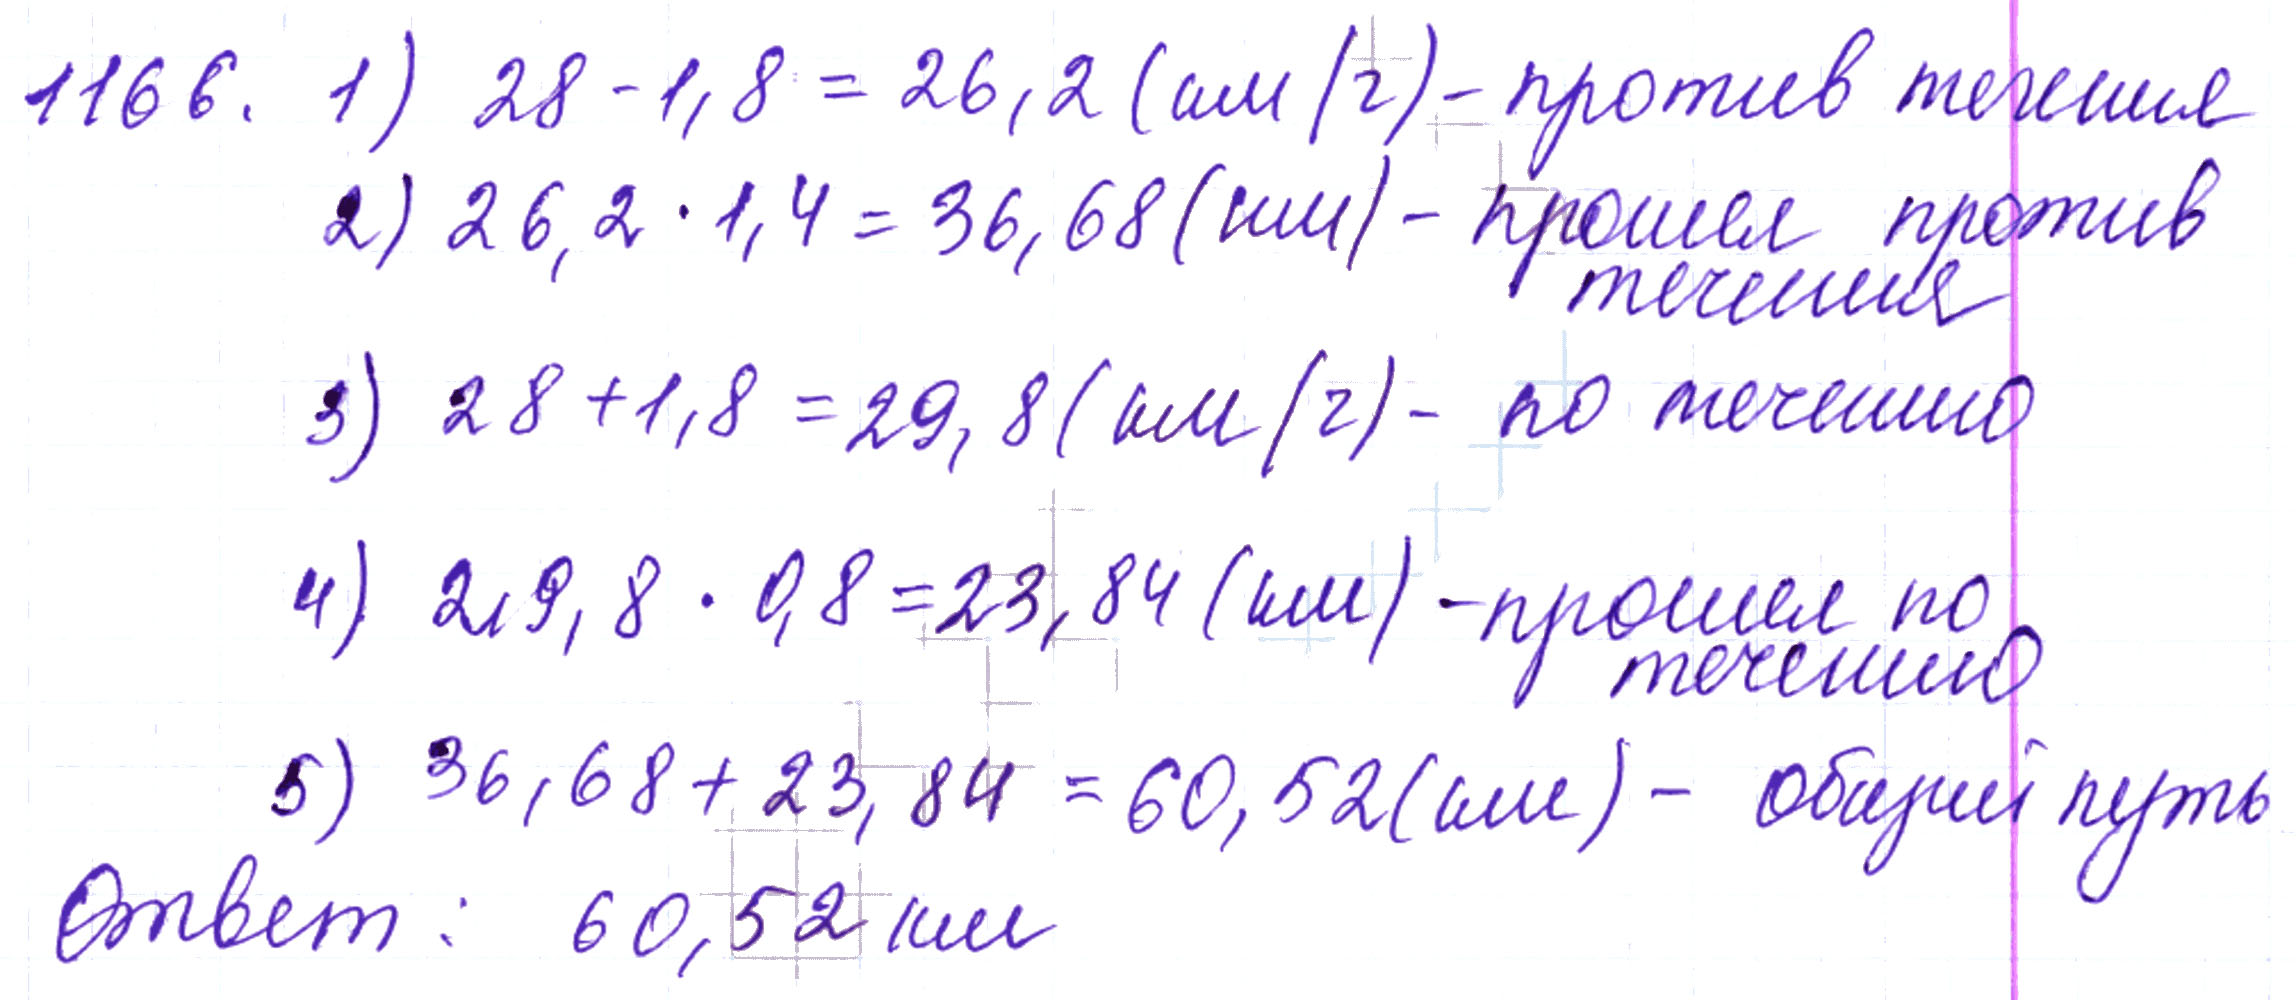 1166. 1) 28 - 1,8 = 26,2 (км/г) - против течения
2) 26,2 · 1,4 = 36,68 (км) - прошел против
течения
3) 28 + 1,8 = 29,8 (км/г) - по течению
4) 29,8 · 0,8 = 23,84 (км) - прошел по
течению
5) 36,68 + 23,84 = 60,52 (км) - общий путь
Ответ: 60,52 км